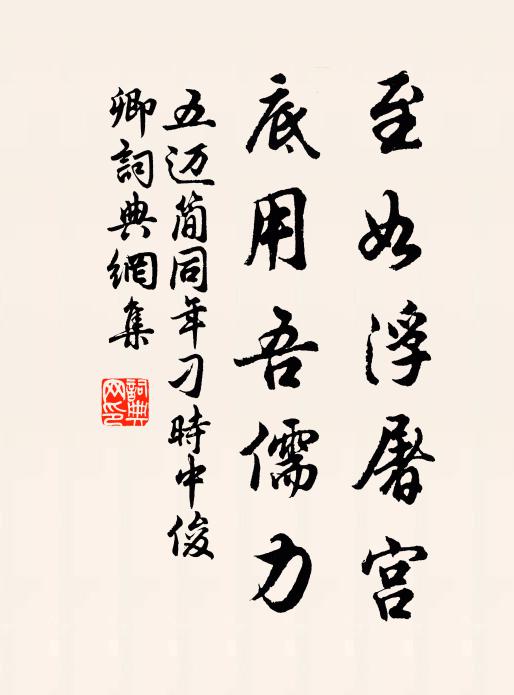 至如浮屠宫
底用吾儒力
五迈简同年刁時中俊
卿詞典網集
詞典网印